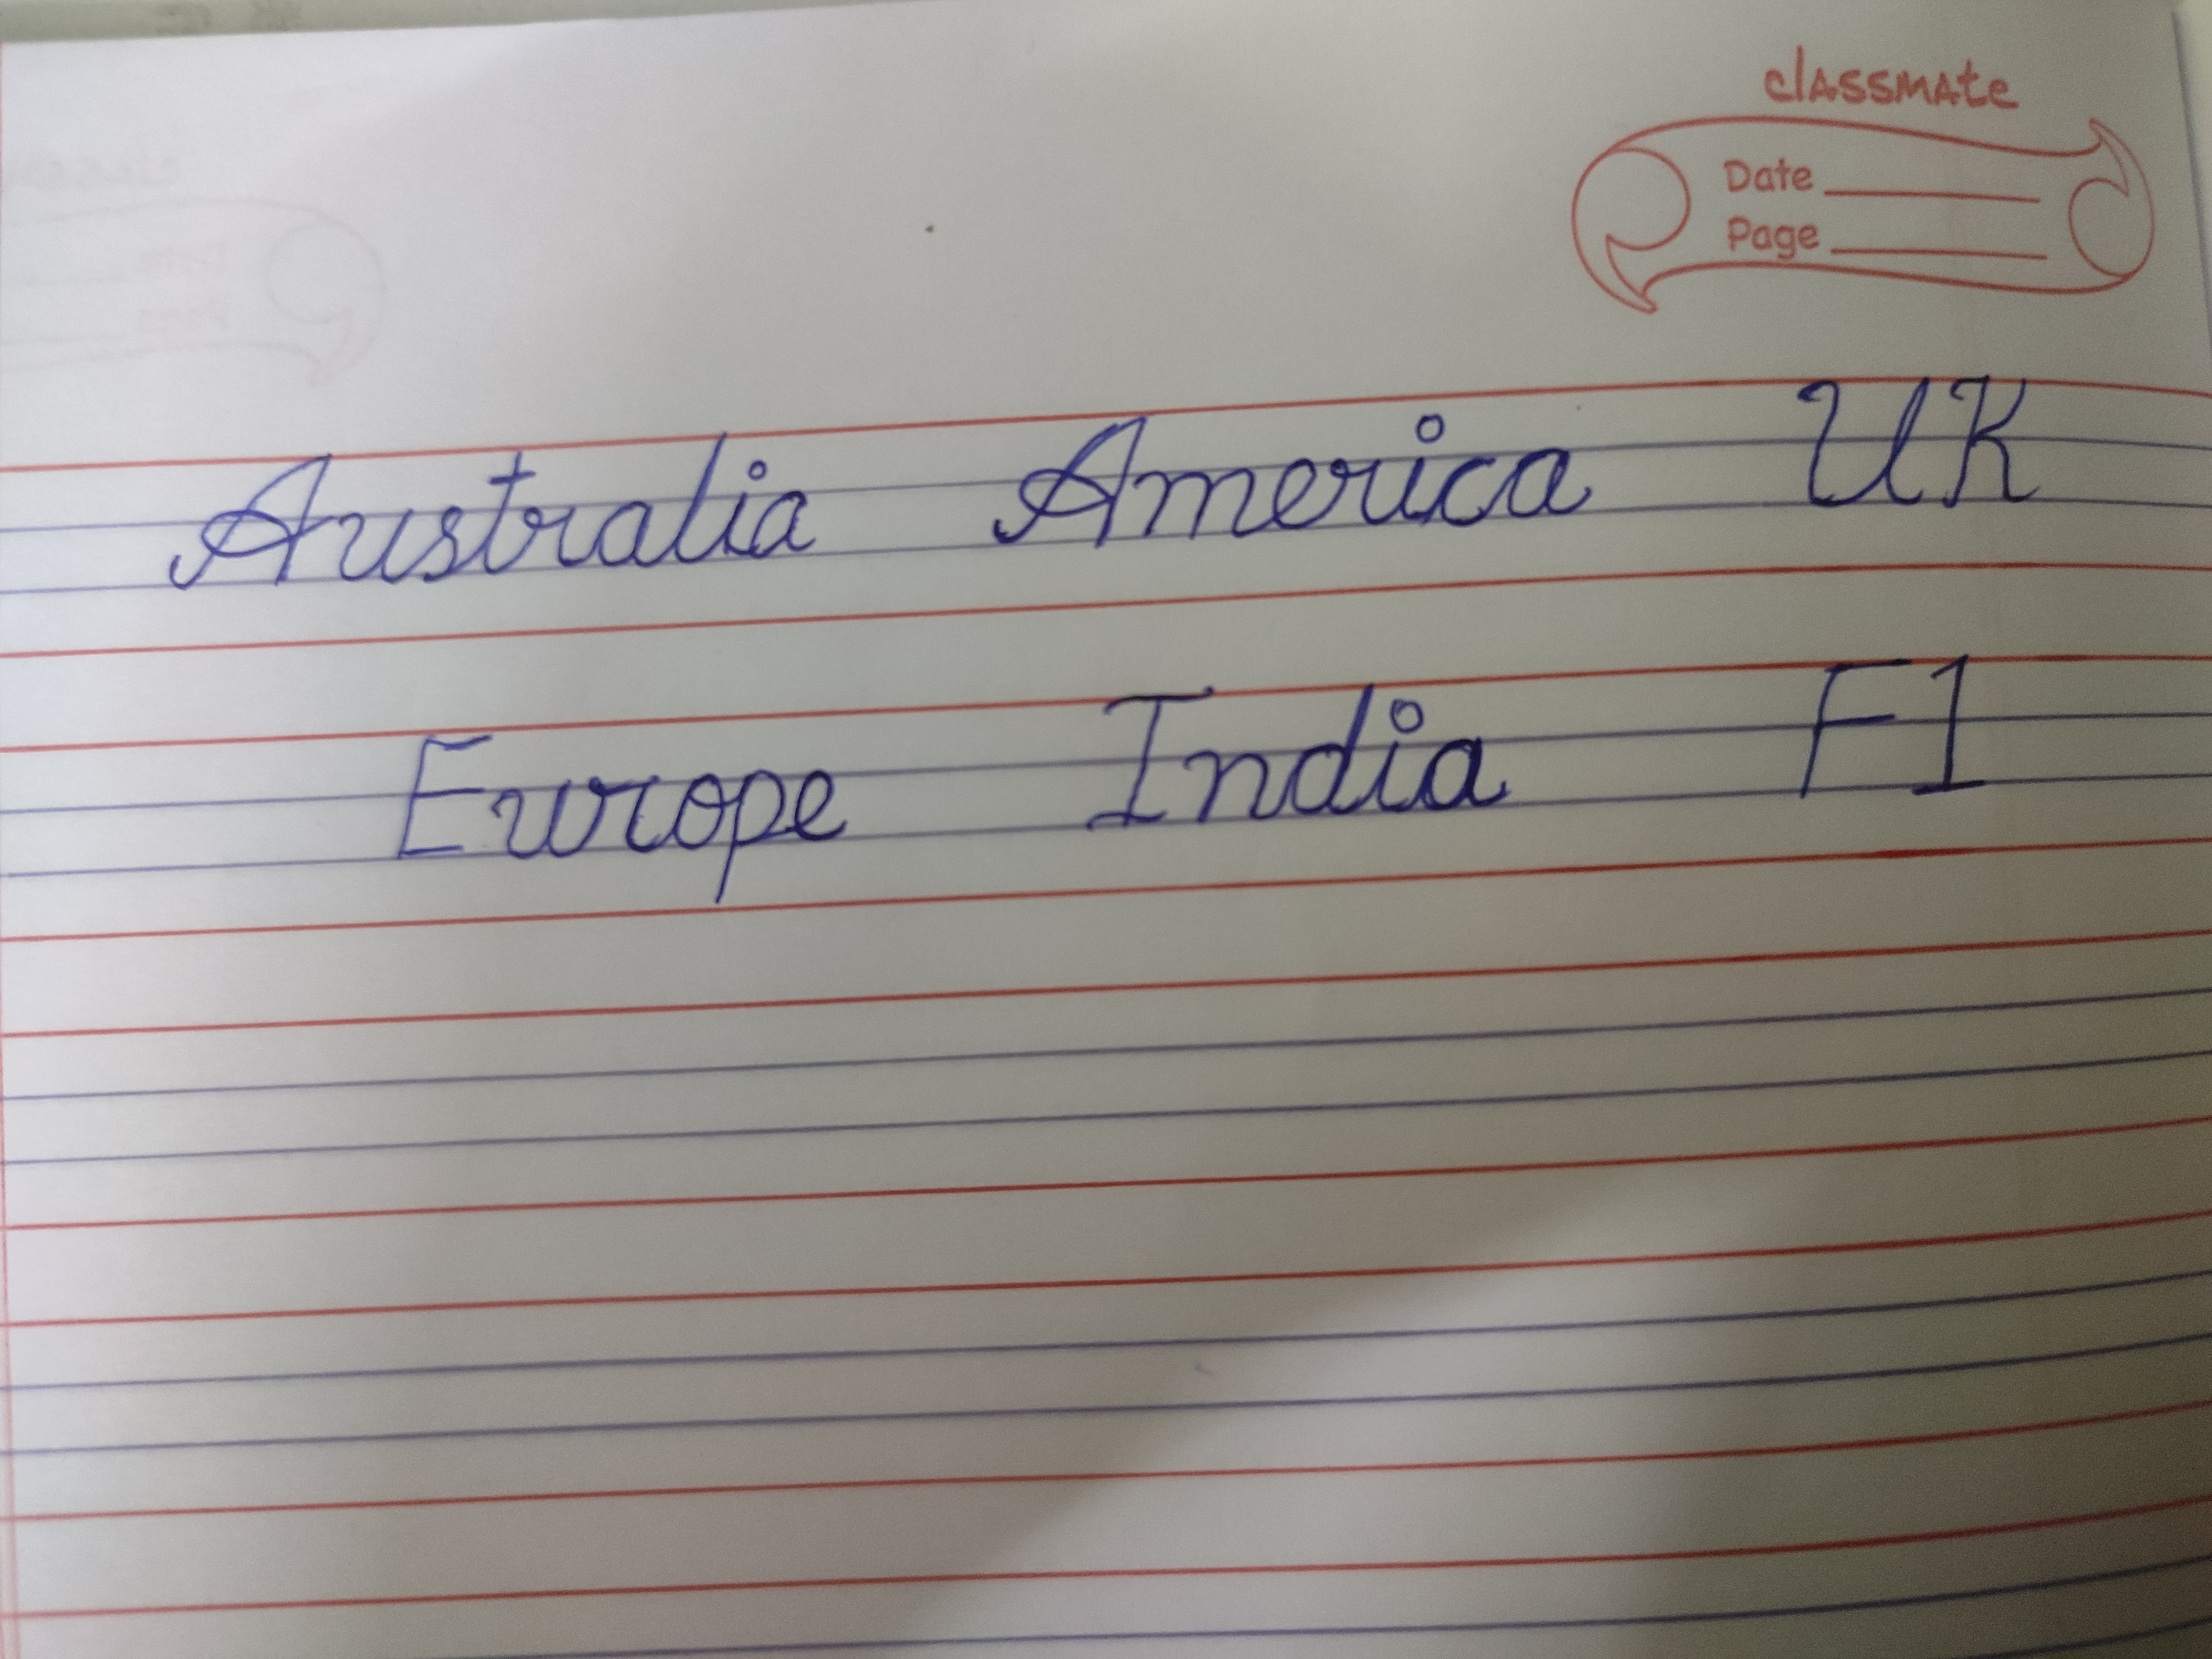 classmate
Date
Page
Australia America UK
Europe India F1